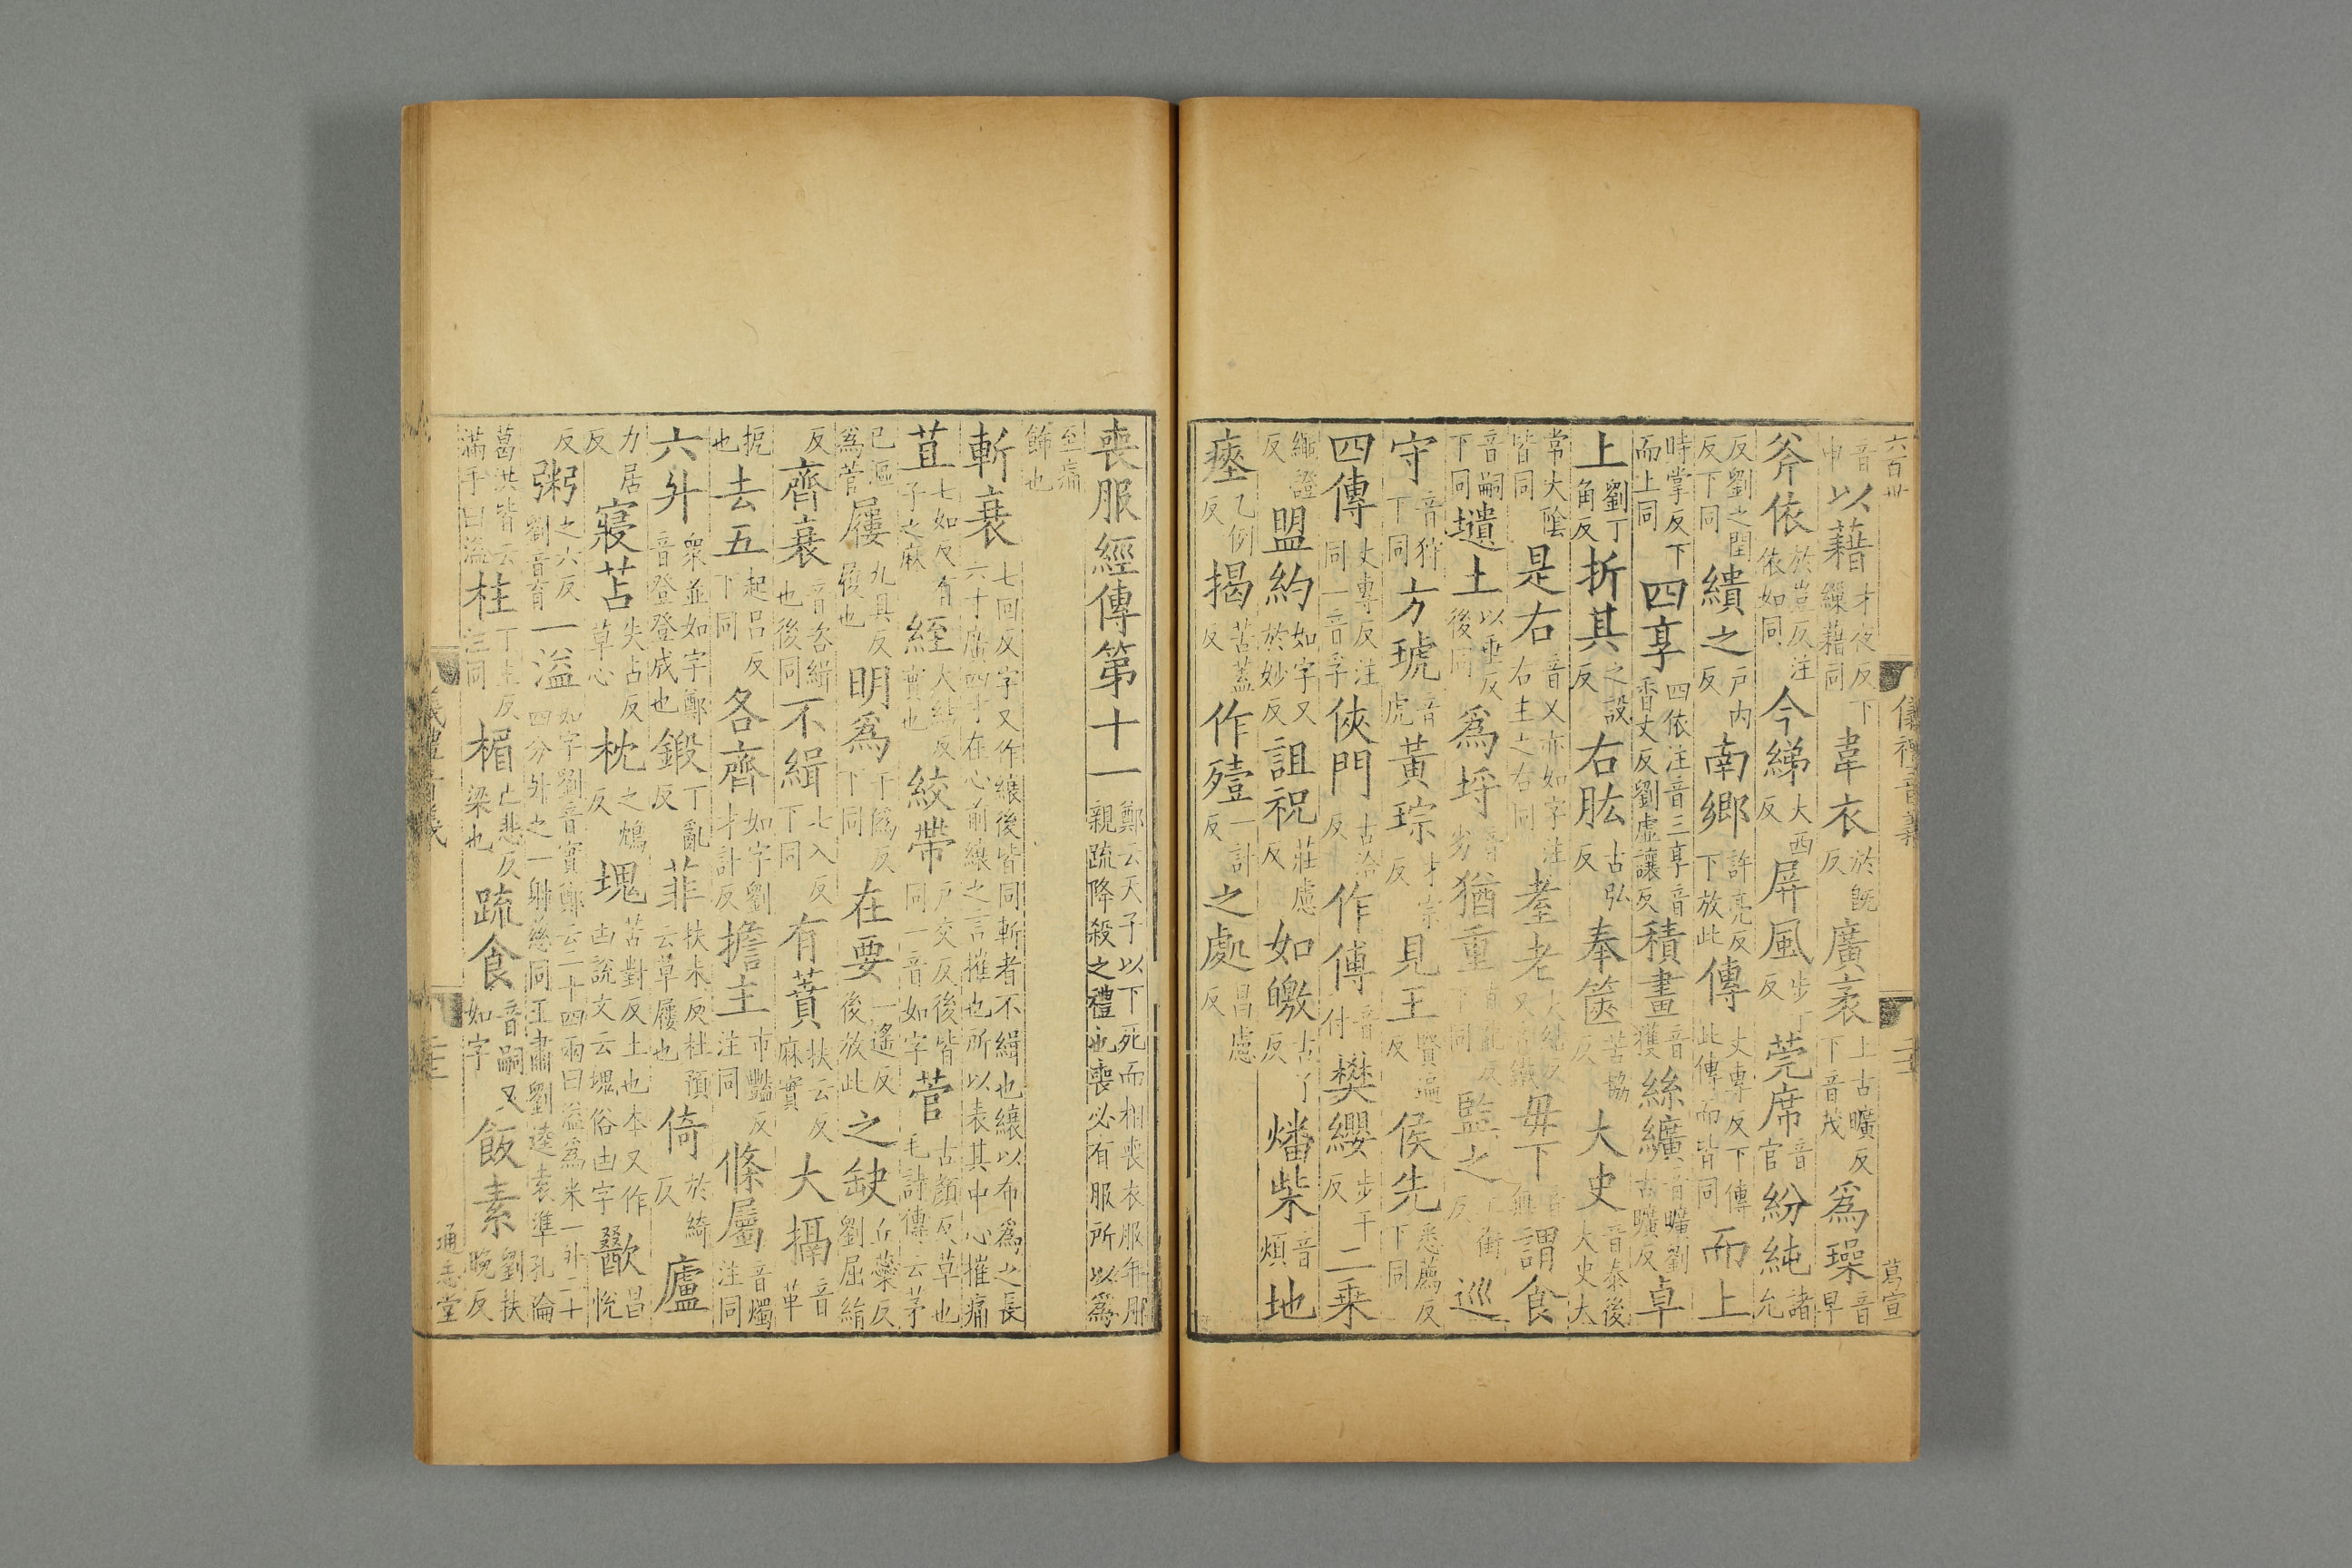 六百卅 儀禮音義 葛宣
音申以藉才夜反下繅藉同韋衣於旣反廣袤上古曠反下音茂爲璪音早
斧依於豈反注依如同今綈大西反屏風步丁反莞席音官紛純諸允
反劉之閏反下同繢之戶内反南鄉許亮反下放此傳丈專反下傳此傳而皆同而上
時掌反下而上同四享四依注音三享音香丈反劉虛讓反積畫音獲絲纊音曠劉古曠反卓
上劉丁角反折其之設反右肱古弘反奉篋苦協反大史音泰後大史大
常大陰皆同是右音又亦如字注右主之右同耋老大結反又他結反毋下音無謂食
音嗣下同壝土以垂反後同爲埒音劣猶重直龍反下同監之工銜反巡
守音狩下同方琥音虎黃琮才宗反見王賢遍反侯先悉薦反下同
四傳丈專反注同一音孚俠門古洽反作傅音付樊纓步干反二乘
繩證反盟約如字又於妙反詛祝莊慮反如皦古了反燔柴音煩地
瘞乙例反揭苦蓋反作殪一計反之處昌慮反
喪服經傳第十一鄭云天子以下死而相喪衣服年月親疏降殺之禮也喪必有服所以爲
至痛飾也
斬衰七回反字又作縗後皆同斬者不緝也縗以布爲之長六寸廣四寸在心前縗之言摧也所以表其中心摧痛
苴七如反有子之麻絰大結反實也絞帶戶交反後皆同一音如字菅古顏反草也毛詩傳云茅
已漚爲菅屨九具反屨也明爲于僞反下同在要一遙反後放此之缺丘蘗反劉屈絹
反齊衰音咨緝也後同不緝七入反下同有蕡扶云反麻實大搹音革
扼也去五起呂反下同各齊如字劉才計反擔主市豔反注同條屬音燭注同
六升眾並如字鄭音登登成也鍛丁亂反菲扶未反杜預云草屨也倚於綺反廬
力居反寢苫失占反草心枕之鴆反塊苦對反土也本又作凷說文云塊俗凷字歠昌悅
反粥之六反劉音育一溢如字劉音實鄭云二十四兩曰溢爲米一升二十四分升之一射慈同王肅劉逵袁準孔倫
葛洪皆云滿手曰溢柱丁主反注同楣亡悲反梁也疏食音嗣又如字飯素劉扶晚反
通志堂